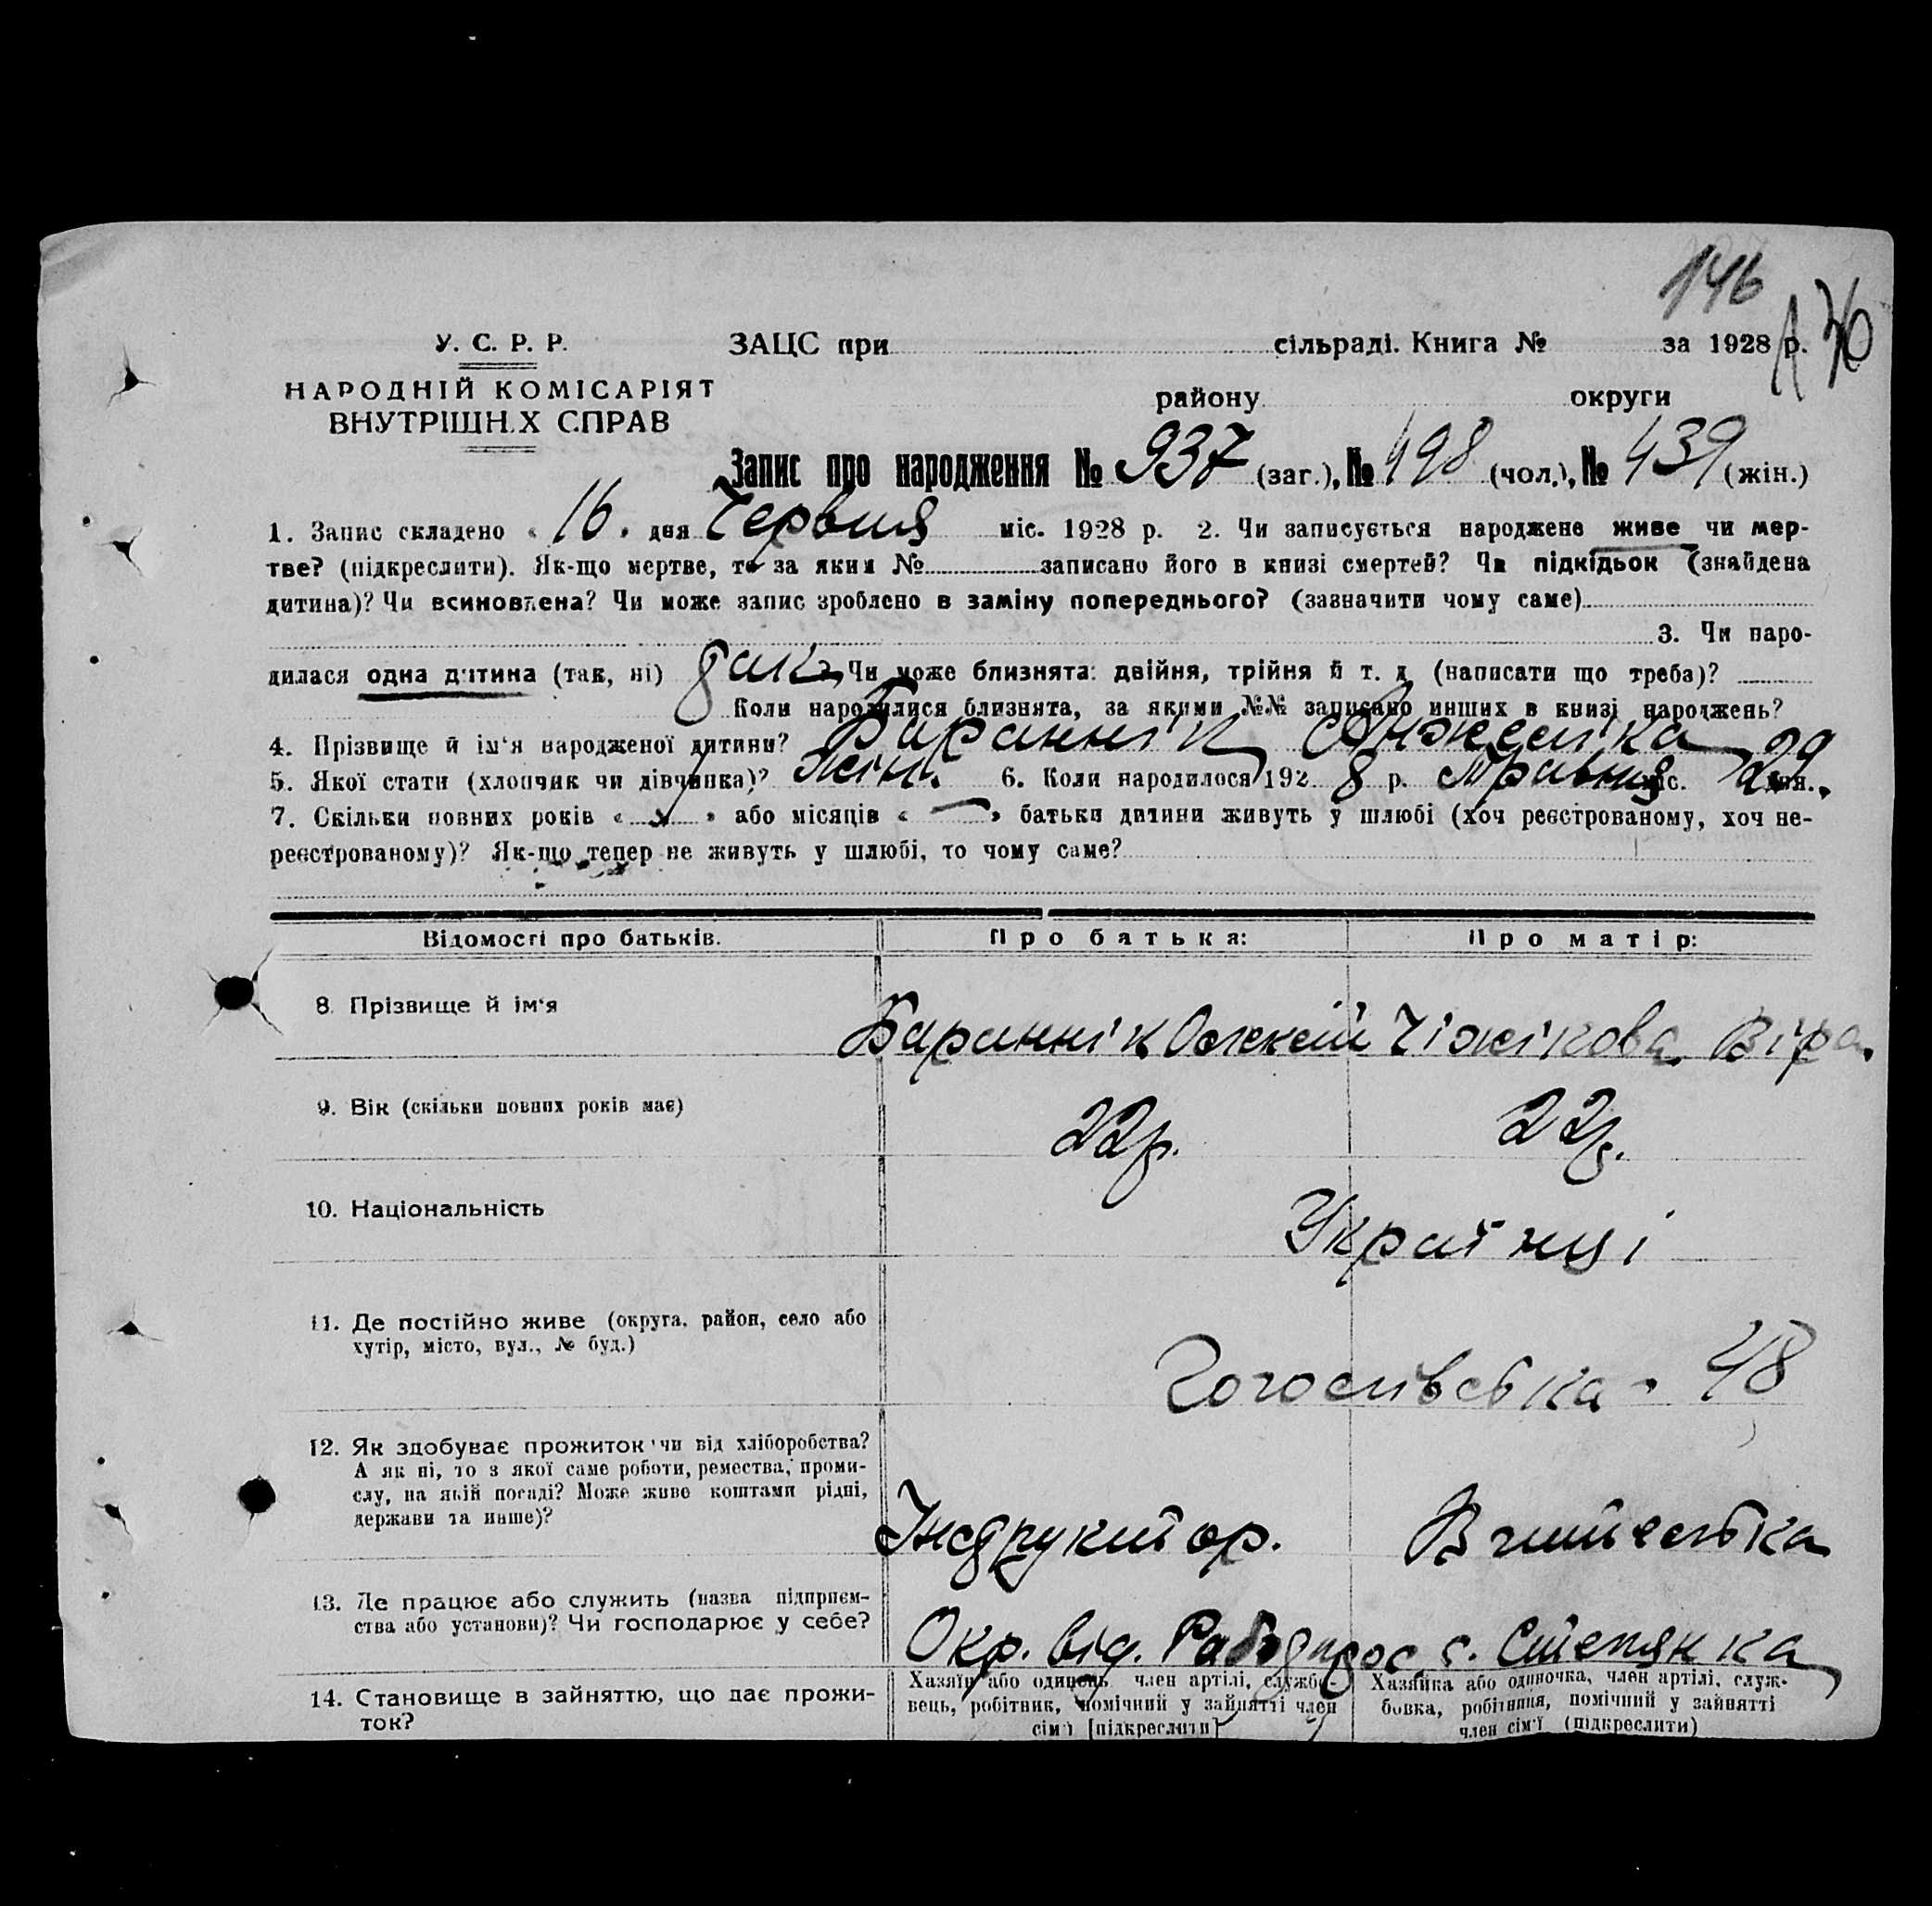 146
А 36
У. С. Р. Р.
НАРОДНІЙ КОМІСАРІЯТ
ВНУТРІШН.Х СПРАВ
ЗАЦС при сільраді. Книга № за 1928 р.
району округи
Запис про народження № 937 (заг.), № 498 (чол.), № 439 (жін.)
1. Запис складено « 16 » дня Червня міс. 1928 р. 2. Чи записується народжене живе чи мер-
тве? (підкреслити). Як-що мертве, то за яким № записано його в книзі смертей? Чи підкідьок (знайдена
дитина)? Чи всиновлена? Чи може запис зроблено в заміну попереднього? (зазначити чому саме)
3. Чи наро-
дилася одна дитина (так, ні) так Чи може близнята: двійня, трійня й т. д. (написати що треба)?
Коли народилися близнята, за якими №№ записано инших в книзі народжень?
4. Прізвище й ім'я народженої дитини? Бараннік Анжеліка
5. Якої стати (хлопчик чи дівчинка)? жін. 6. Коли народилося 192 8 р. Травня міс. 29 дня.
7. Скільки повних років « » або місяців « — » батьки дитини живуть у шлюбі (хоч реєстрованому, хоч не-
реєстрованому)? Як-що тепер не живуть у шлюбі, то чому саме?
Відомості про батьків. Про батька: Про матір:
8. Прізвище й ім'я Бараннік Олексій Чіжікова Віра
9. Вік (скільки повних років має) 22р. 22р.
10. Національність Українці
11. Де постійно живе (округа, район, село або
хутір, місто, вул., № буд.)
Гоголівська - 48
12. Як здобуває прожиток чи від хліборобства?
А як ні, то з якої саме роботи, ремества, проми-
слу, на якій посаді? Може живе коштами рідні,
держави та инше)?
Інструктор. Вчителька
13. Де працює або служить (назва підприєм-
ства або установи)? Чи господарює у себе?
Окр. від. Робітпрос с. Степянка
14. Становище в зайняттю, що дає прожи-
ток?
Хазяїн або одинець член артілі, службо-
вець, робітник, помічний у зайнятті член
сім'ї [підкреслити]
Хазяйка або одиночка, член артілі, служ-
бовка, робітниця, помічний у зайнятті
член сім'ї (підкреслити)